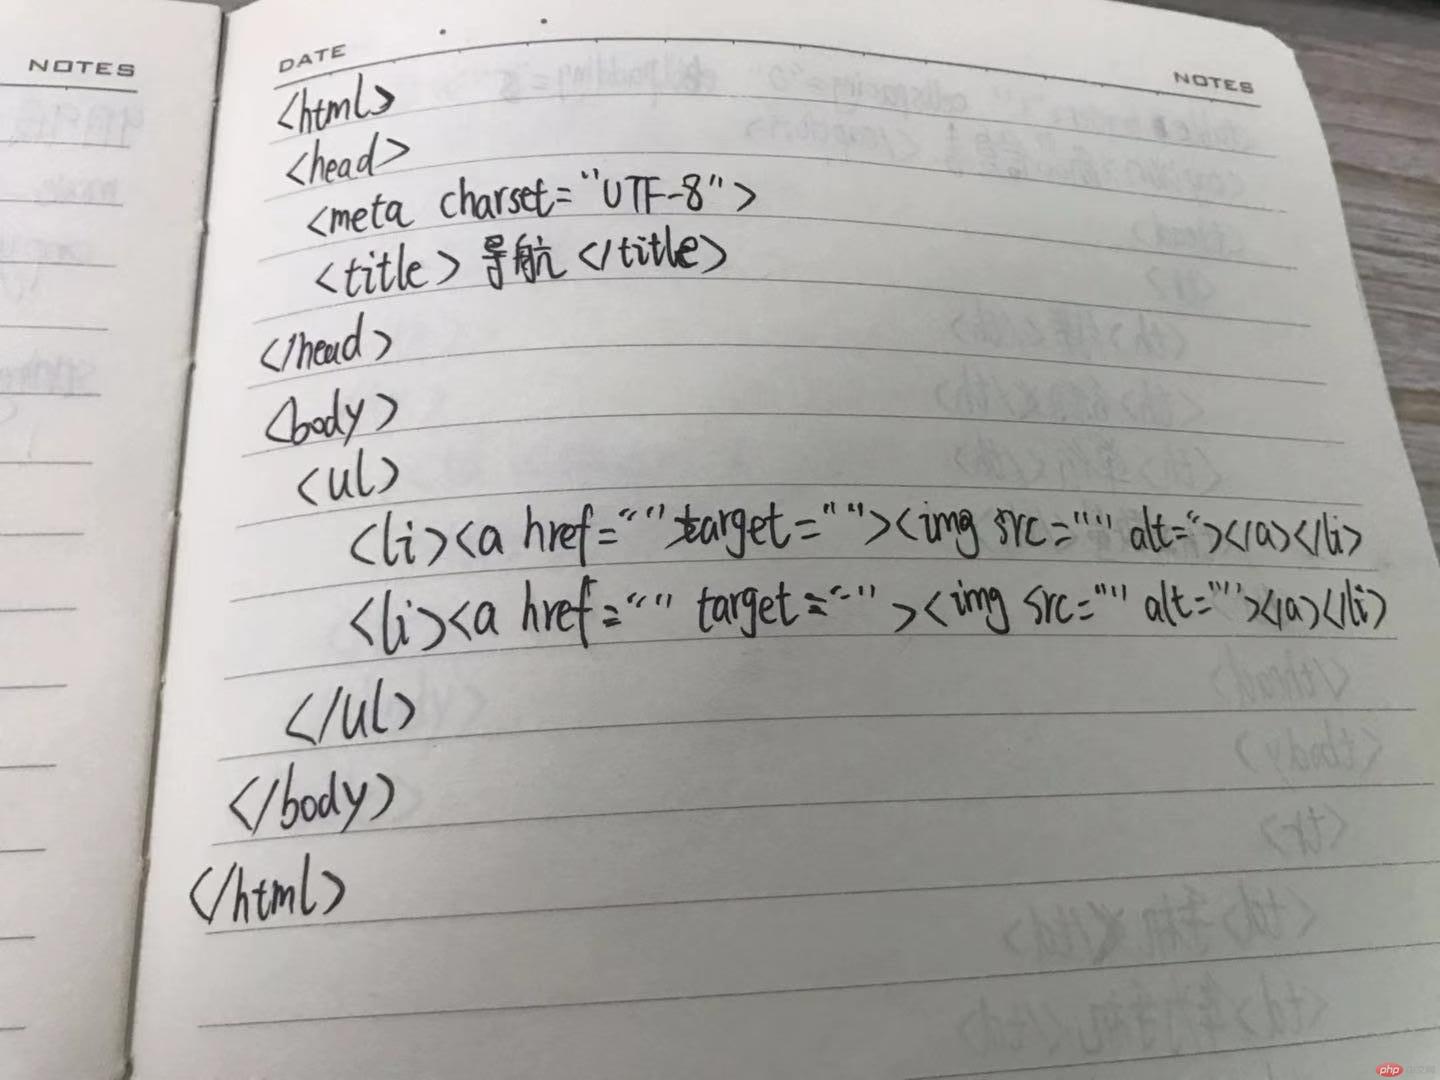 NOTES
DATE
NOTES
<html>
<head>
<meta charset="UTF-8">
<title> 导航 </title>
</head>
<body>
<ul>
<li><a href="" target=""><img src="" alt="></a></li>
<li><a href="" target=""><img src="" alt=""></a></li>
</ul>
</body>
</html>
php